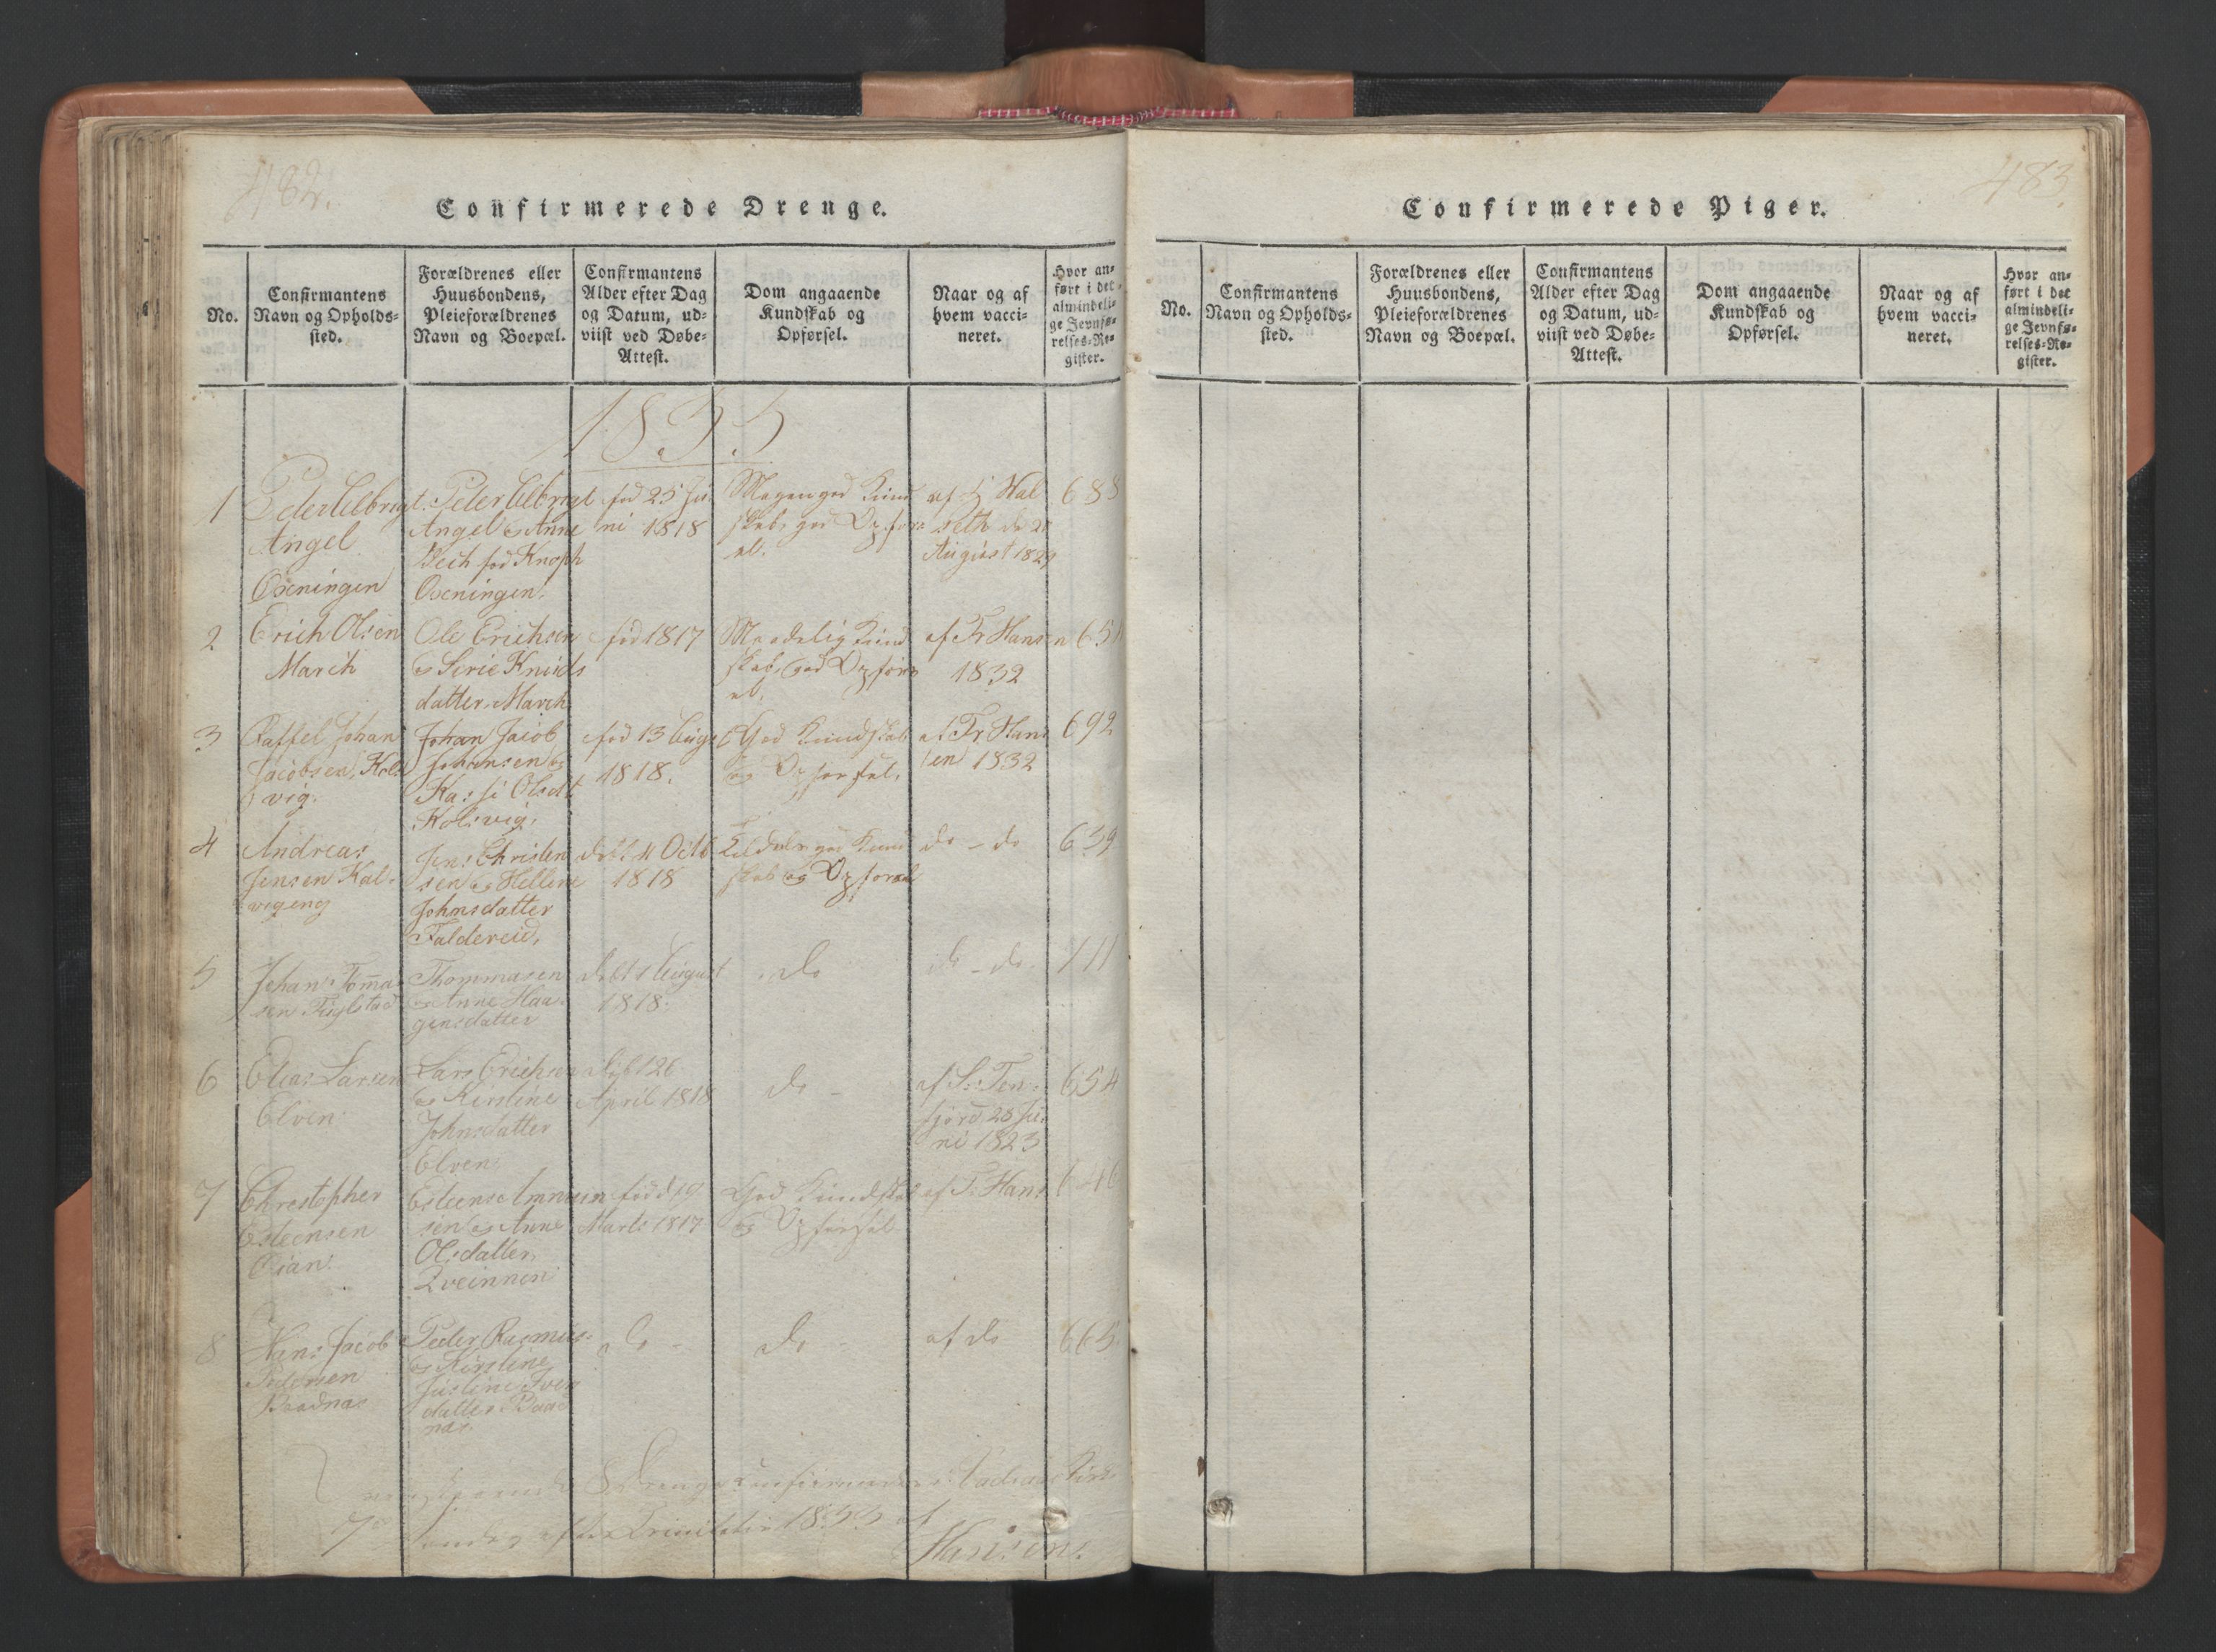 482.
Confirmerede Drenge.
No.
Confirmantens
Navn og Opholds-
sted.
Forældrenes eller
Huusbondens,
Pleieforældrenes
Navn og Boepæl.
Confirmantens
Alder efter Dag
og Datum, ud-
viist ved Døbe-
Attest.
Dom angaaende
Kundskab og
Opførsel.
Naar og af
hvem vacci-
neret.
Hvor an-
ført i det
almindeli-
ge Jevnfø-
relses-Re-
gister.
1833
1
Peder Elbrigt
Angel
Oxeningen
Peter Elbrigt
Angel og Anne
Bech fød Knoph
Oxeningen.
fød 25 Ju
ni 1818
Megen god Kund
skab, god Opførs
el.
af Hal
seth d. 28
August 1829
688
2
Erich Olsen
March
Ole Erichsen
og Sirie Knuds
datter March
fød 1817
Maadelig Kund
skab, god Opførs
el.
af Fr Hansen
1832
651
3
Johan
Jacobsen, Kols
vig.
Johan Jacob
Johansen og
Olsdt
Kolsvig.
fød 13 Aug
1818.
God Kundskab
og Opførsel.
af Fr. Han
sen 1832
692
4
Andreas
Jensen Kal-
vigeng
Jens Christen
sen og Hellene
Johnsdatter
Faldereid.
døbt 11 Octb
1818
god Kund
skab og Opførsel
do - do
639
5
Johan Toma
sen Fuglstad
Thommasen
og Anne Haa-
gensdatter
døbt 1 August
1818.
do
do - do.
711
6
Elias Larsen
Elven
Lars Erichsen
og Kirstine
Johnsdatter
Elven
døbt 26
April 1818
do -
af S. Ten-
fjord 28 Ju-
ni 1823
654
7
Christopher
Esteensen
Oian.
Esteens Amnun
sen og Anne
Olsdatter
Qveinnen
fød d 19
Marts 1817
God Kundskab
og Opførsel
af F. Hans
646
8
Hans Jacob
Pedersen
Baadnas
Peder Rasmus:
og Kirstine
Justine Iver
datter Baad
nas.
do -
do -
af do
665
8 Drenge confirmerede i Kirk
7de Søndag efter Trinitatis 1833 af
Hansens.
483.
Confirmerede Piger.
No.
Confirmantens
Navn og Opholds-
sted.
Forældrenes eller
Huusbondens,
Pleieforældrenes
Navn og Boepæl.
Confirmantens
Alder efter Dag
og Datum, ud-
viist ved Døbe-
Attest.
Dom angaaende
Kundskab og
Opførsel.
Naar og af
hvem vacci-
neret.
Hvor an-
ført i det
almindeli-
ge Jevnfø-
relses-Re-
gister.